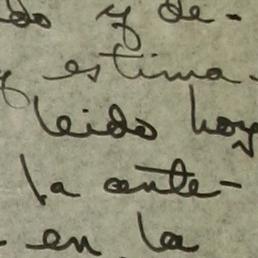 do y de-
y estima-
leido hoy
la ante-
- en la